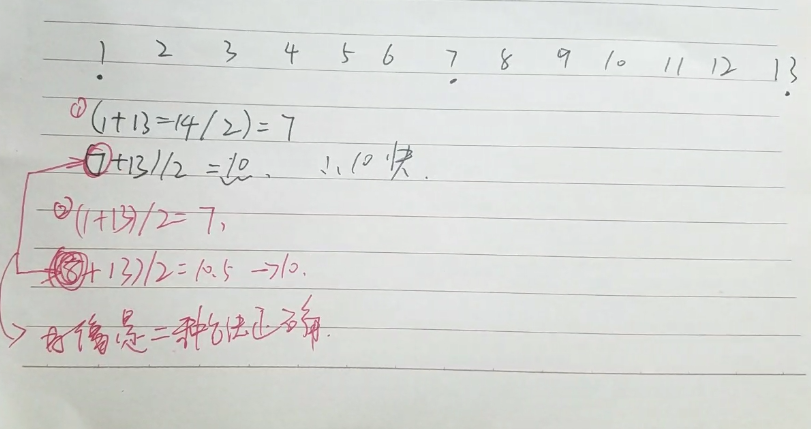 1 2 3 4 5 6 7 8 9 10 11 12 13
① (1+13=14/2)=7
7+13)/2=10. ∴10快.
② (1+13)/2=7,
(8+13)/2=10.5→10.
是二种方法正确.